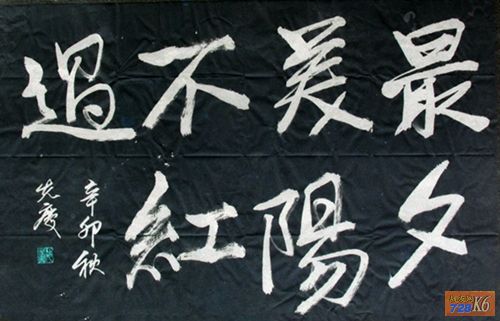 最美不過
夕陽紅
辛卯秋
K6